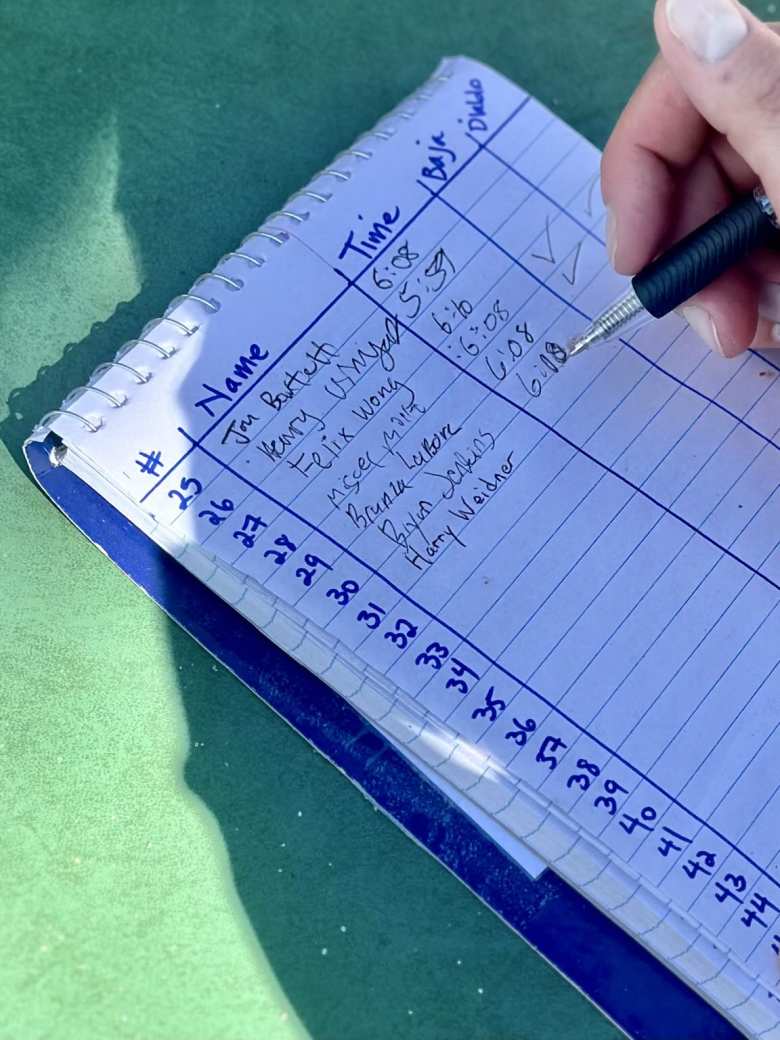 # Name Time /Baja /Diablo
25 Jon Bartlett 6:08
26 Henry 5:59
27 Felix Wong 6:10
28 6:08
29 6:08
30 Bryan Jenkins 6:08
31 Harry Weidner
32
33
34
35
36
37
38
39
40
41
42
43
44